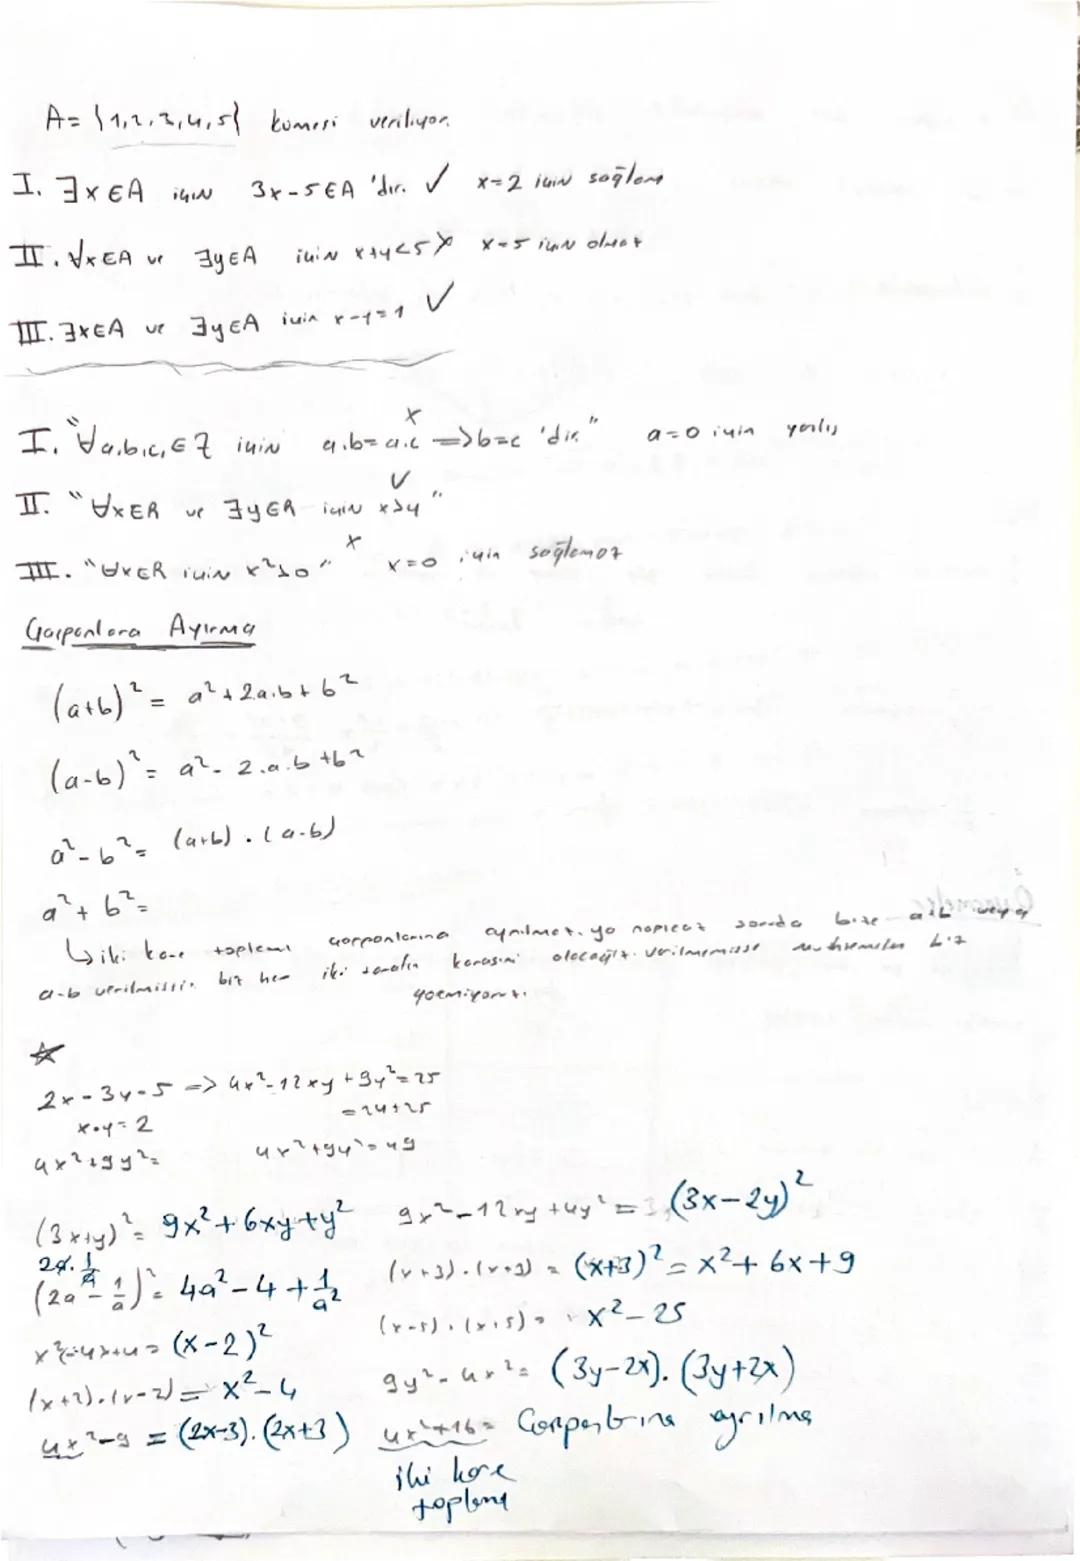 A= {1,2,3,4,5} kümesi veriliyor.
I. ∃x∈A için 3x-5∈A 'dır. ✓ x=2 için sağlam
II. ∀x∈A ve ∃y∈A için x+y<5 x x=5 için olmaz
III. ∃x∈A ve ∃y∈A için x-y=1 ✓
I. "∀a,b,c,∈Z için a.b=a.c ⇒b=c 'dir." x a=0 için yanlış
II. "∀x∈R ve ∃y∈R için x>y" ✓
III. "∀x∈R için x²>0" x x=0 için sağlamaz
Çarpanlara Ayırma
(a+b)² = a²+2a.b+b²
(a-b)² = a²-2.a.b+b²
a²-b²= (a+b).(a-b)
a²+b²=
↳ iki kare toplamı çarpanlarına ayrılmaz. ya napıcaz soruda bize a+b veya
a-b verilmiştir. biz her iki tarafın karesini alacağız. verilmemişse
★
2x-3y=5 => 4x²-12xy+9y²=25
x.y=2 =24+25
4x²+9y²= 4x²+9y²=49
(3x+y)² = 9x²+6xy+y² 9x²-12xy+4y² = (3x-2y)²
2a.1/a
(2a-1/a)² = 4a²-4+1/a² (x+3).(x+3) = (x+3)² = x²+6x+9
x²-4x+4 = (x-2)² (x-5).(x+5) = x²-25
(x+2).(x-2) = x²-4 9y²-4x² = (3y-2x).(3y+2x)
4x²-9 = (2x-3).(2x+3) 4x²+16= Çarpanlarına ayrılmaz
iki kare
toplamı